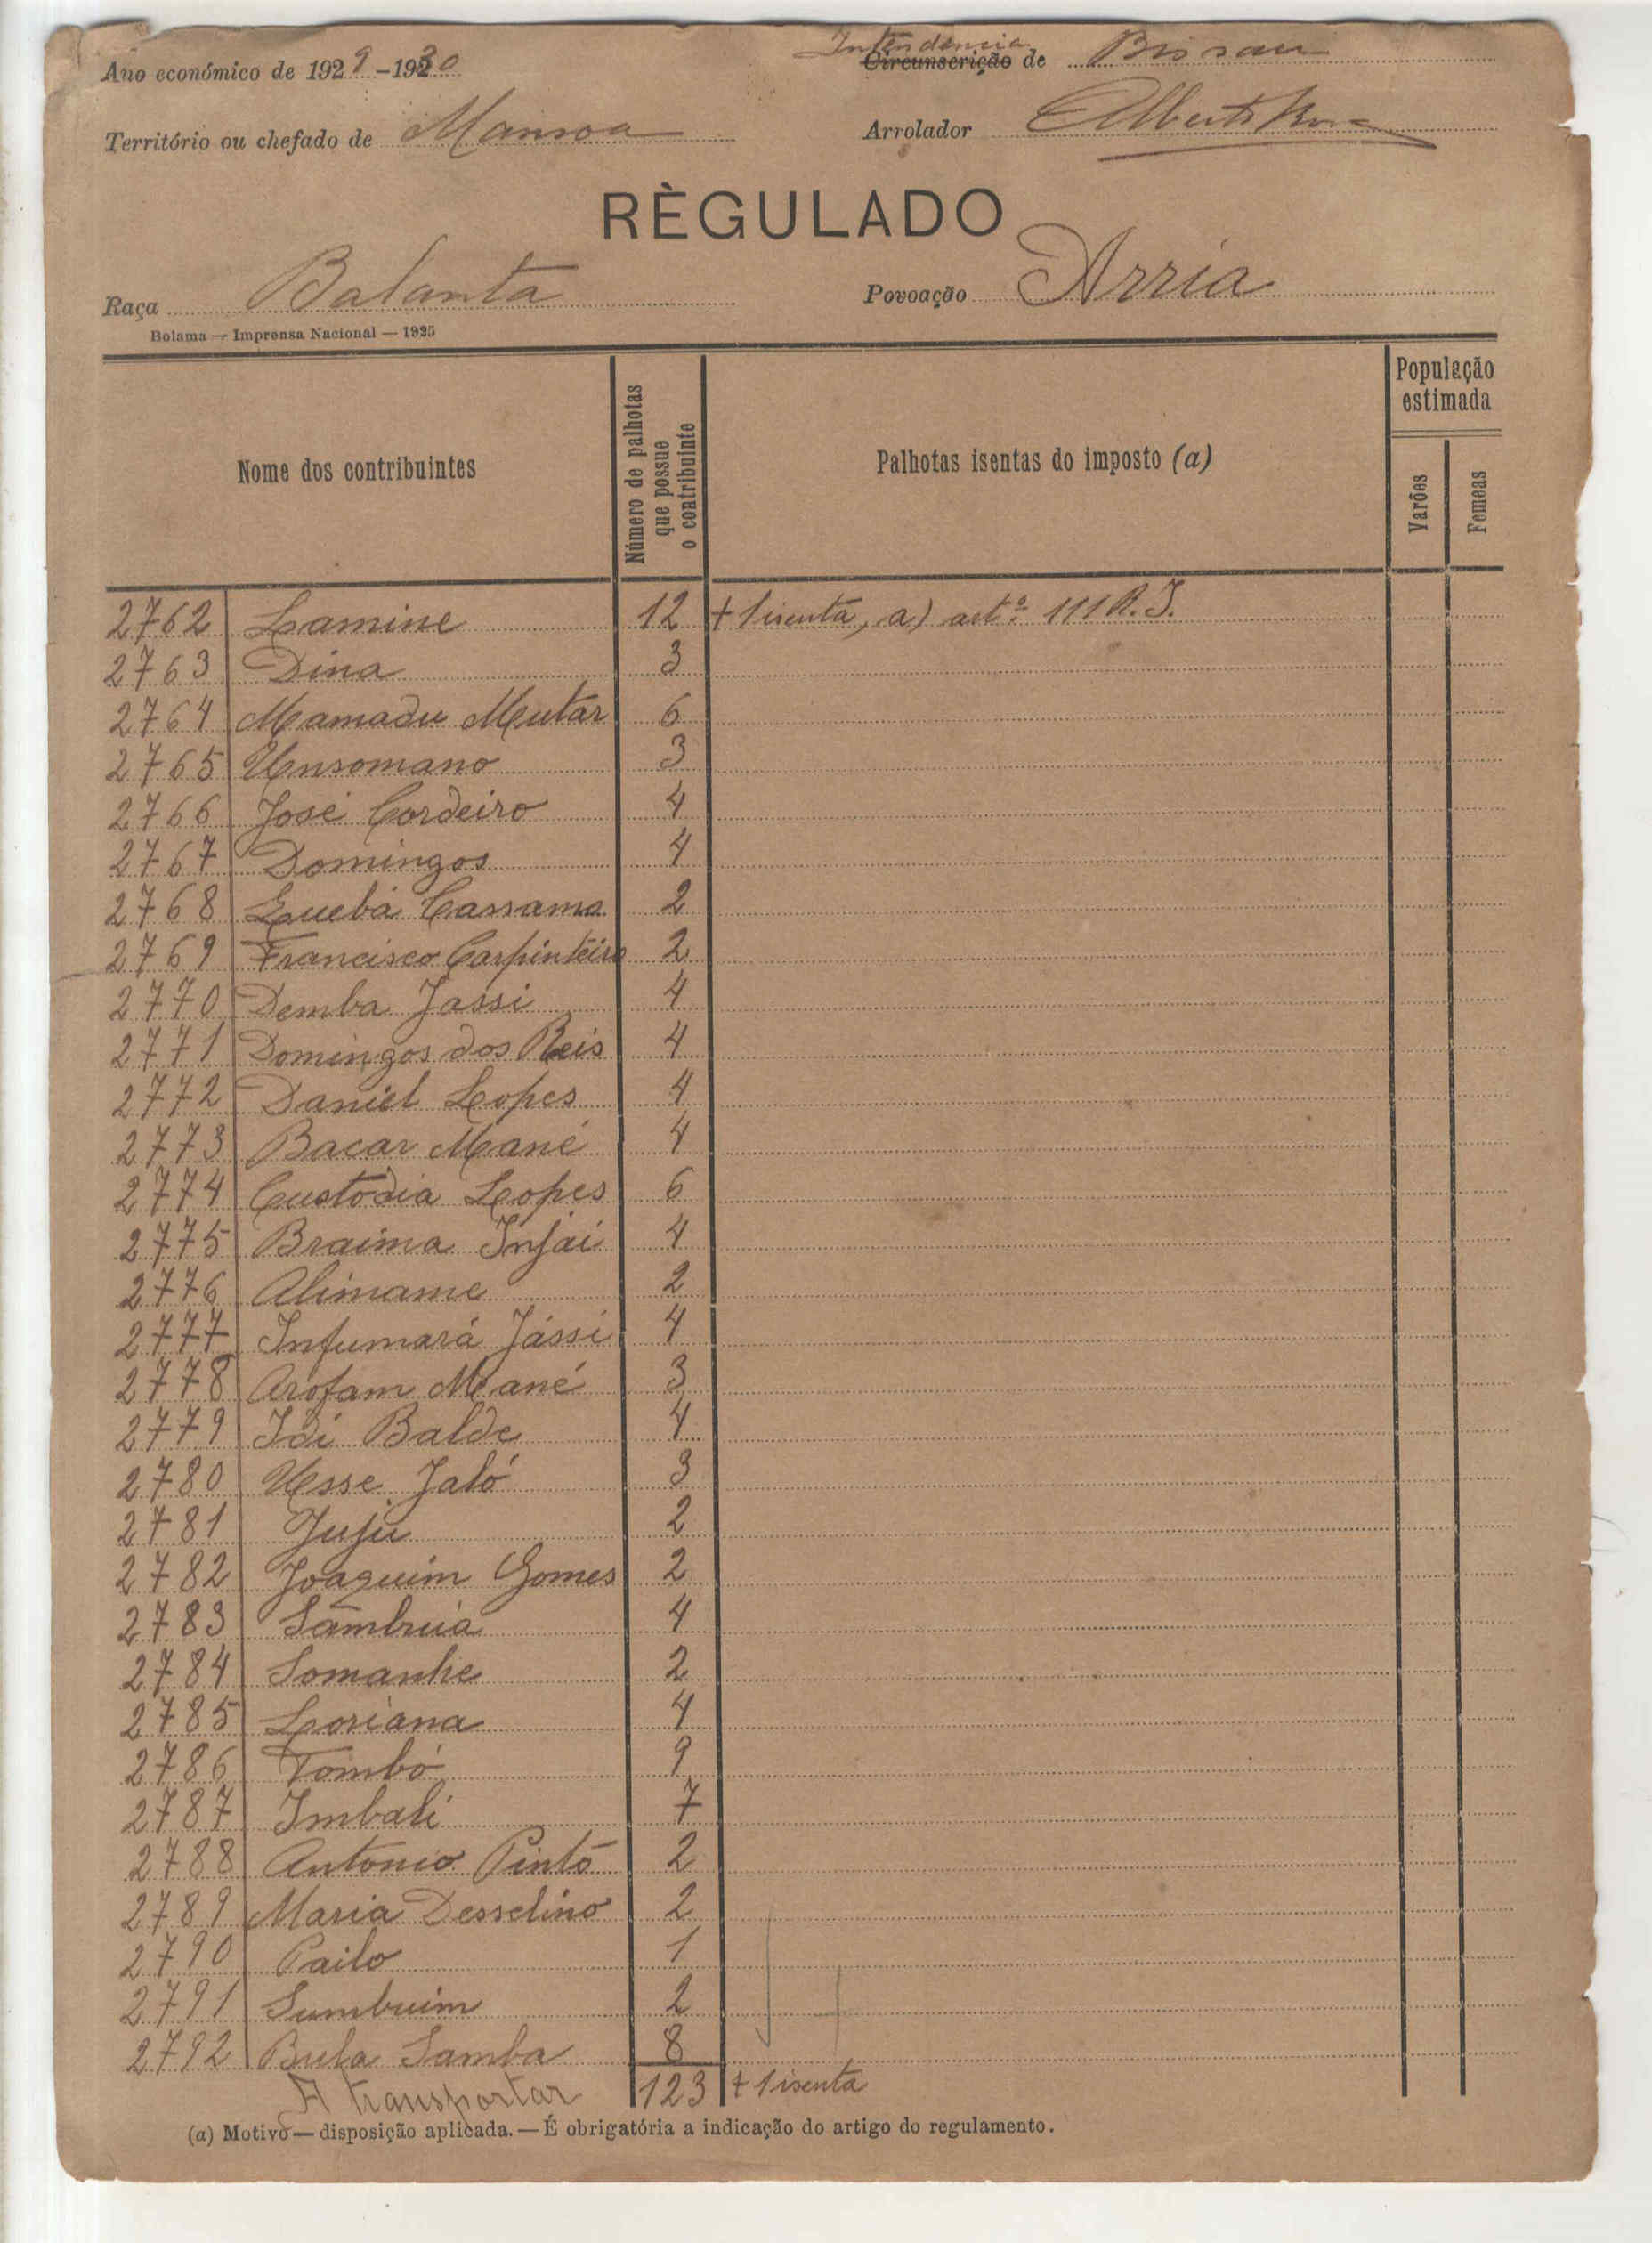 Ano económico de 1929-1930
Intendencia
Circunscrição de Bissau
Território ou chefado de Mansoa
Arrolador Alberto
RÈGULADO
Raça Balanta
Povoação Arria
Bolama — Imprensa Nacional — 1925
Nome dos contribuintes
Número de palhotas
que possue
o contribuinte
Palhotas isentas do imposto (a)
População
estimada
Varões
Femeas
2762 Lamine 12 + 1 isenta, a) artº 111 R. I.
2763 Dina 3
2764 Mamadu Mutar 6
2765 Unsomano 3
2766 José Cordeiro 4
2767 Domingos 4
2768 Quebá Cassama 2
2769 Francisco Carpinteiro 2
2770 Demba Jassi 4
2771 Domingos dos Reis 4
2772 Daniel Lopes 4
2773 Bacar Mané 4
2774 Custodia Lopes 6
2775 Braima Injai 4
2776 Alimame 2
2777 Infumará Jássi 4
2778 Arófam Mané 3
2779 Idi Balde 4
2780 Usse Jaló 3
2781 Juju 2
2782 Joaquim Gomes 2
2783 Sambuiá 4
2784 Somanhe 2
2785 Loriana 4
2786 Tombó 9
2787 Imbali 7
2788 Antonio Pinto 2
2789 Maria Desselino 2
2790 Pailo 1
2791 Sumbuim 2
2792 Bula Samba 8
A transportar 123 + 1 isenta
(a) Motivo — disposição aplicada. — É obrigatória a indicação do artigo do regulamento.